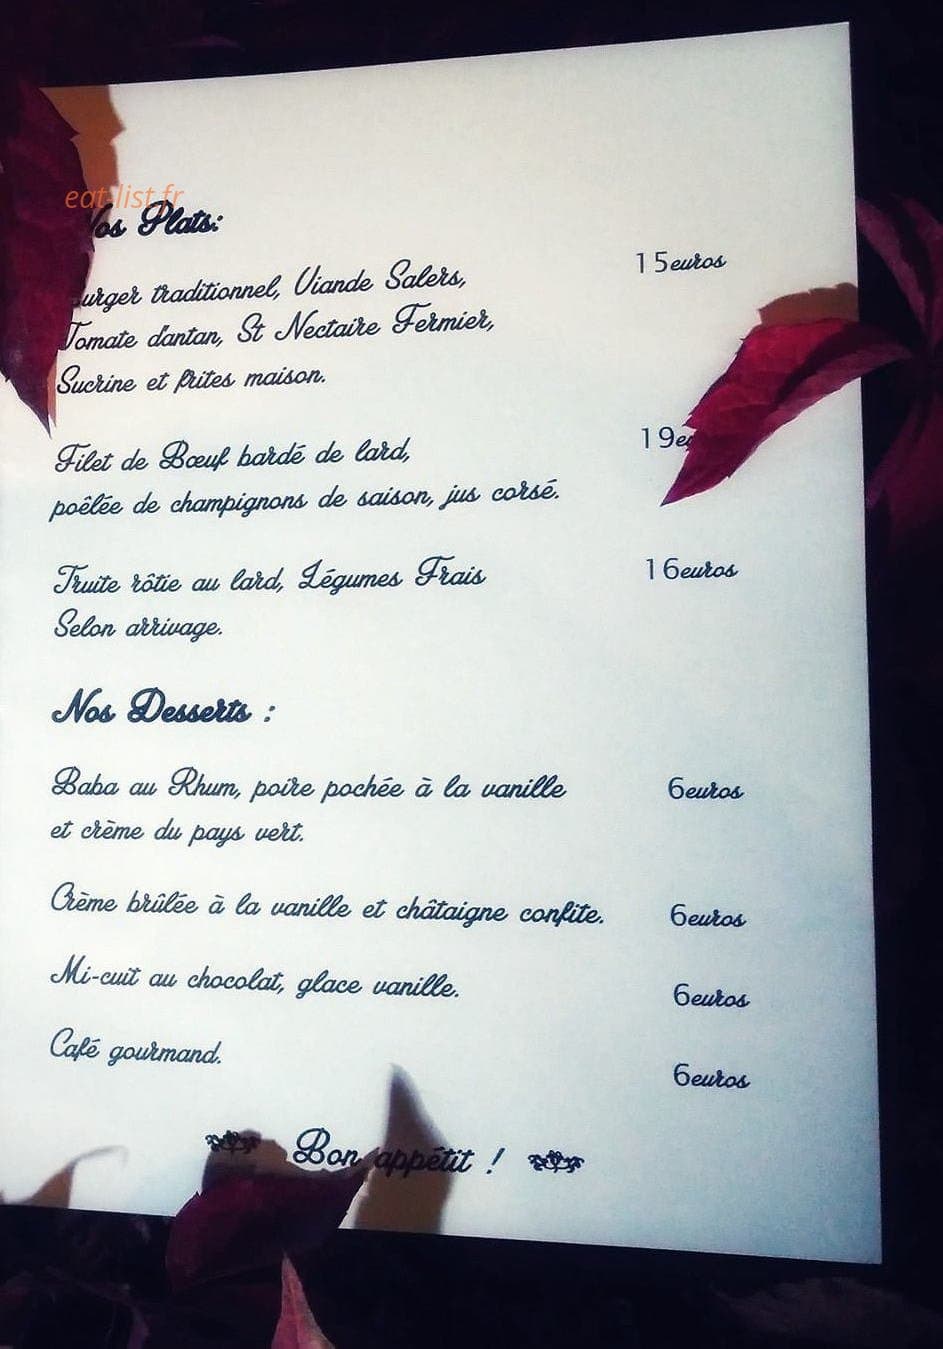 eat-list.fr
Nos Plats:
Burger traditionnel, Viande Salers,
15euros
Tomate d'antan, St Nectaire Fermier,
Sucrine et frites maison.
Filet de Bœuf bardé de lard,
19eu
poêlée de champignons de saison, jus corsé.
Truite rôtie au lard, Légumes Frais
16euros
Selon arrivage.
Nos Desserts :
Baba au Rhum, poire pochée à la vanille
6euros
et crème du pays vert.
Crème brûlée à la vanille et châtaigne confite.
6euros
Mi-cuit au chocolat, glace vanille.
6euros
Café gourmand.
6euros
Bon appétit !